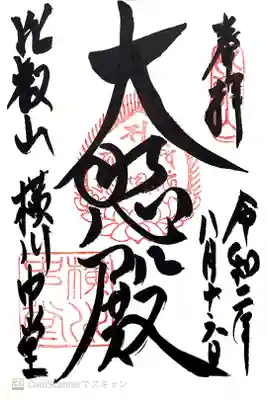 奉拝
令和二年
八月十六日
大悲殿
比叡山
横川中堂
CamScannerでスキャン